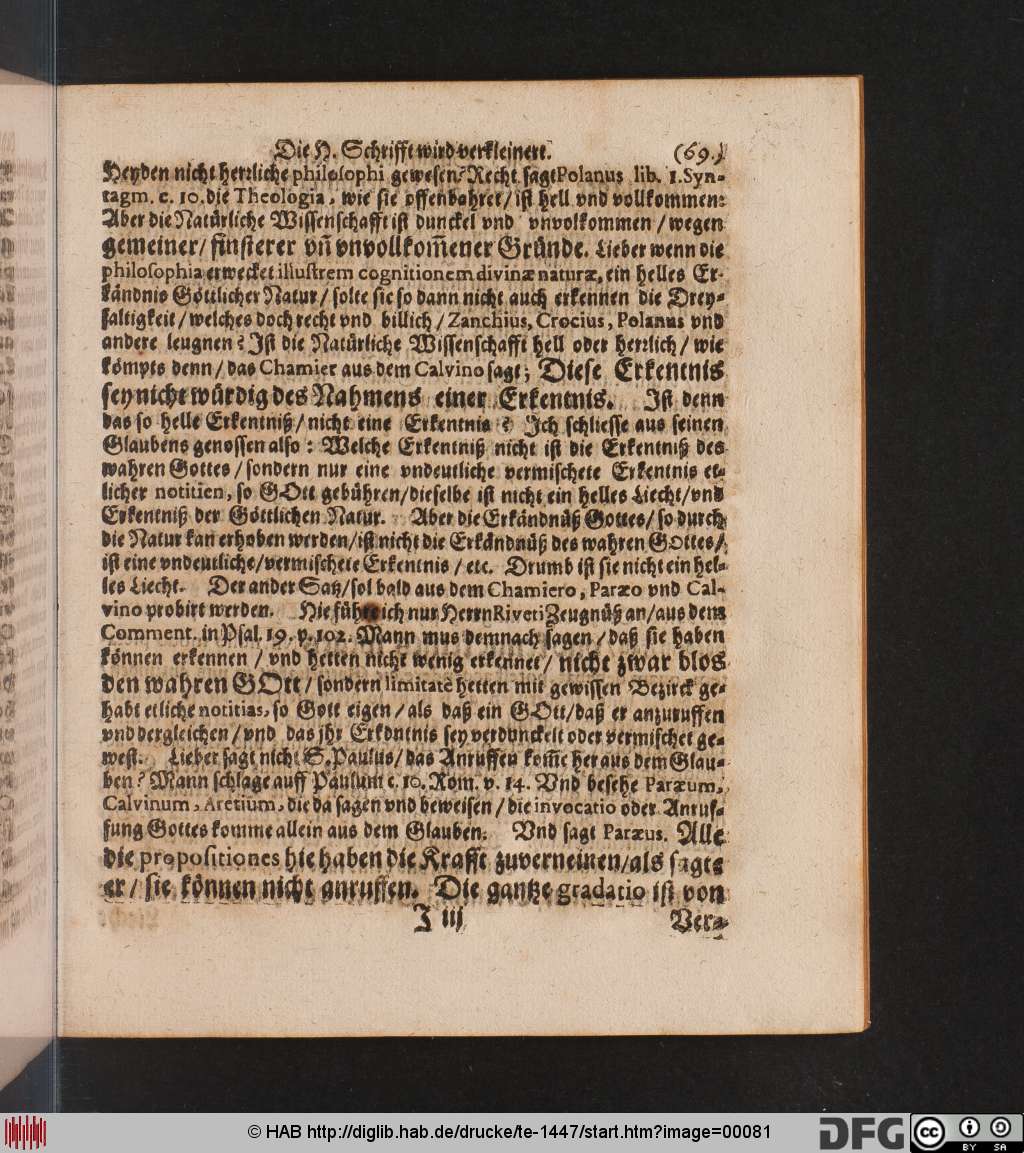 Die H. Schrifft wird verkleinert. (69.)
Heyden nicht herꝛliche philosophi gewesen? Recht sagt Polanus lib. 1. Syn-
tagm. c. 10. die Theologia, wie sie offenbahret / ist hell vnd vollkommen:
Aber die Natürliche Wissenschafft ist dunckel vnd vnvolkommen / wegen
gemeiner / finsterer vñ vnvollkom̃ener Gründe. Lieber wenn die
philosophia erwecket illustrem cognitionem divinæ naturæ, ein helles Er-
kändnis Göttlicher Natur / solte sie so dann nicht auch erkennen die Drey-
faltigkeit / welches doch recht vnd billich / Zanchius, Crocius, Polanus vnd
andere leugnen? Ist die Natürliche Wissenschafft hell oder herꝛlich / wie
kömpts denn / das Chamier aus dem Calvino sagt; Diese Erkentnis
sey nicht würdig des Nahmens einer Erkentnis. Ist denn
das so helle Erkentniß / nicht eine Erkentnis? Ich schliesse aus seinen
Glaubens genossen also: Welche Erkentniß nicht ist die Erkentniß des
wahren Gottes / sondern nur eine vndeutliche vermischete Erkentnis et-
licher notitien, so GOtt gebühren / dieselbe ist nicht ein helles Liecht / vnd
Erkentniß der Göttlichen Natur. Aber die Erkändnüß Gottes / so durch
die Natur kan erhoben werden / ist nicht die Erkändnüß des wahren GOttes /
ist eine vndeutliche / vermischete Erkentnis / etc. Drumb ist sie nicht ein hel-
les Liecht. Der ander Satz / sol bald aus dem Chamiero, Paræo vnd Cal-
vino probirt werden. Hie führe ich nur Herrn Riveti Zeugnüß an / aus dem
Comment. in Psal. 19. p. 102. Mann mus demnach sagen / daß sie haben
können erkennen / vnd hetten nicht wenig erkennet / nicht zwar blos
den wahren GOtt / sondern limitatè hetten mit gewissen Bezirck ge-
habt etliche notitias, so Gott eigen / als daß ein GOtt / daß er anzuruffen
vnd dergleichen / vnd das jhr Erkäntnis sey verdunckelt oder vermischet ge-
west. Lieber sagt nicht S. Paulus / das Anruffen kom̃e her aus dem Glau-
ben? Mann schlage auff Paulum c. 10. Rom. v. 14. Vnd besehe Paræum,
Calvinum, Aretium, die da sagen vnd beweisen / die invocatio oder Anruf-
fung Gottes komme allein aus dem Glauben. Vnd sagt Paræus. Alle
die propositiones hie haben die Krafft zuverneinen / als sagte
er / sie können nicht anruffen. Die gantze gradatio ist von
J iij Ver-
© HAB http://diglib.hab.de/drucke/te-1447/start.htm?image=00081
DFG
cc BY SA